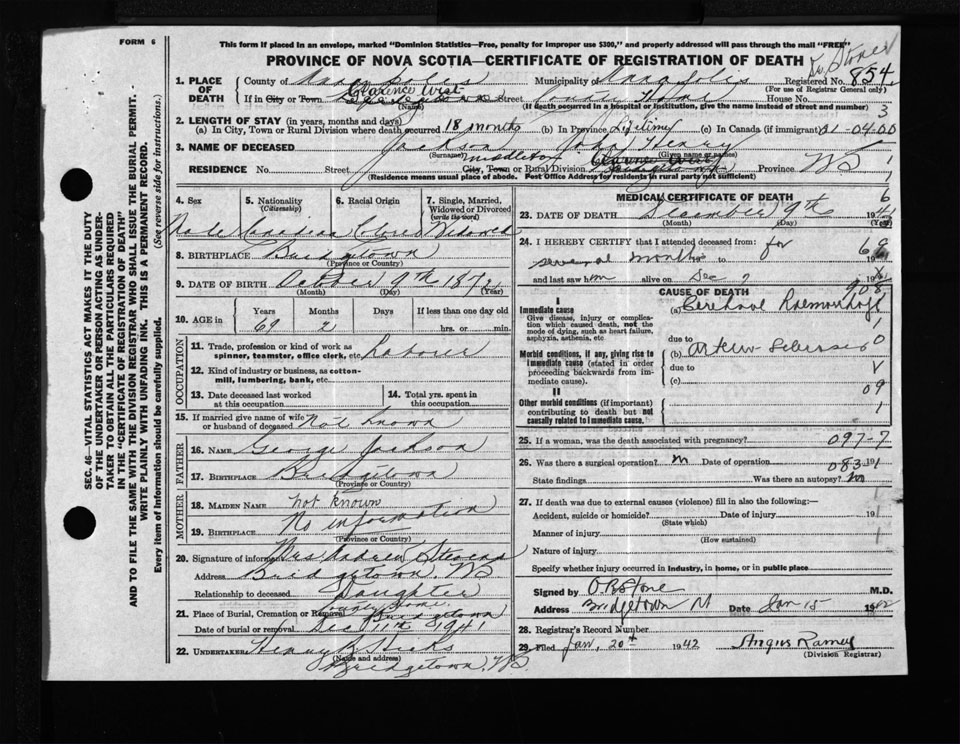 FORM 6
This form if placed in an envelope, marked "Dominion Statistics—Free, penalty for improper use $300," and properly addressed will pass through the mail "FREE"
PROVINCE OF NOVA SCOTIA—CERTIFICATE OF REGISTRATION OF DEATH
1. PLACE OF DEATH County of Annapolis Municipality of Annapolis Registered No. 854
(For use of Registrar General only)
Clarence West
If in City or Town (Name) Street County Home House No.
(If death occurred in a hospital or institution, give the name instead of street and number) 3
2. LENGTH OF STAY (in years, months and days)
(a) In City, Town or Rural Division where death occurred 18 months (b) In Province Lifetime (c) In Canada (if immigrant) 01-04.00
3. NAME OF DECEASED Jackson John Henry
(Surname) (Given name or names)
RESIDENCE No. Street Middleton City, Town or Rural Division Clarence West Province NS
(Residence means usual place of abode. Post Office Address for residents in rural parts not sufficient)
SEC. 46—VITAL STATISTICS ACT MAKES IT THE DUTY
OF THE UNDERTAKER OR PERSON ACTING AS UNDER-
TAKER "TO OBTAIN ALL THE PARTICULARS REQUIRED
IN THE "CERTIFICATE OF REGISTRATION OF DEATH"
AND TO FILE THE SAME WITH THE DIVISION REGISTRAR WHO SHALL ISSUE THE BURIAL PERMIT.
WRITE PLAINLY WITH UNFADING INK. THIS IS A PERMANENT RECORD.
Every item of Information should be carefully supplied. (See reverse side for instructions.)
4. Sex 5. Nationality (Citizenship) 6. Racial Origin 7. Single, Married, Widowed or Divorced (write the word)
Male Canadian Colored Widowed
8. BIRTHPLACE Bridgetown
(Province or Country)
9. DATE OF BIRTH October 9th 1872
(Month) (Day) (Year)
10. AGE in Years Months Days If less than one day old
69 2 hrs. or min.
OCCUPATION
11. Trade, profession or kind of work as spinner, teamster, office clerk, etc. Laborer
12. Kind of industry or business, as cotton-mill, lumbering, bank, etc.
13. Date deceased last worked at this occupation
14. Total yrs. spent in this occupation
15. If married give name of wife or husband of deceased Not Known
FATHER
16. NAME George Jackson
17. BIRTHPLACE Bridgetown
(Province or Country)
MOTHER
18. MAIDEN NAME not known
19. BIRTHPLACE No information
(Province or Country)
20. Signature of informant Mrs Andrew Stevens
Address Bridgetown, NS
Relationship to deceased Daughter
21. Place of Burial, Cremation or Removal County Home Bridgetown
Date of burial or removal Dec 11th 1941
22. UNDERTAKER Henry Hicks
(Name and address)
Bridgetown, NS.
MEDICAL CERTIFICATE OF DEATH
23. DATE OF DEATH December 9th 19
(Month) (Day) (Year)
24. I HEREBY CERTIFY that I attended deceased from: for
several months to 19
and last saw him alive on Dec 7 19
CAUSE OF DEATH
I
Immediate cause (a) Cerebral
Give disease, injury or complication which caused death, not the mode of dying, such as heart failure, asphyxia, asthenia, etc
due to
Morbid conditions, if any, giving rise to immediate cause (stated in order proceeding backwards from immediate cause). (b)
due to
(c)
09
II
Other morbid conditions (if important) contributing to death but not causally related to immediate cause.
25. If a woman, was the death associated with pregnancy? 097-7
26. Was there a surgical operation? Date of operation 083.1 19
State findings Was there an autopsy?
27. If death was due to external causes (violence) fill in also the following:—
Accident, suicide or homicide? Date of injury 19
(State which)
Manner of injury
(How sustained)
Nature of injury
Specify whether injury occurred in industry, in home, or in public place
Signed M.D.
Address Bridgetown Date Jan 15 19
28. Registrar's Record Number
29. Filed Jan, 20th 1942 Angus Ramey
(Division Registrar)